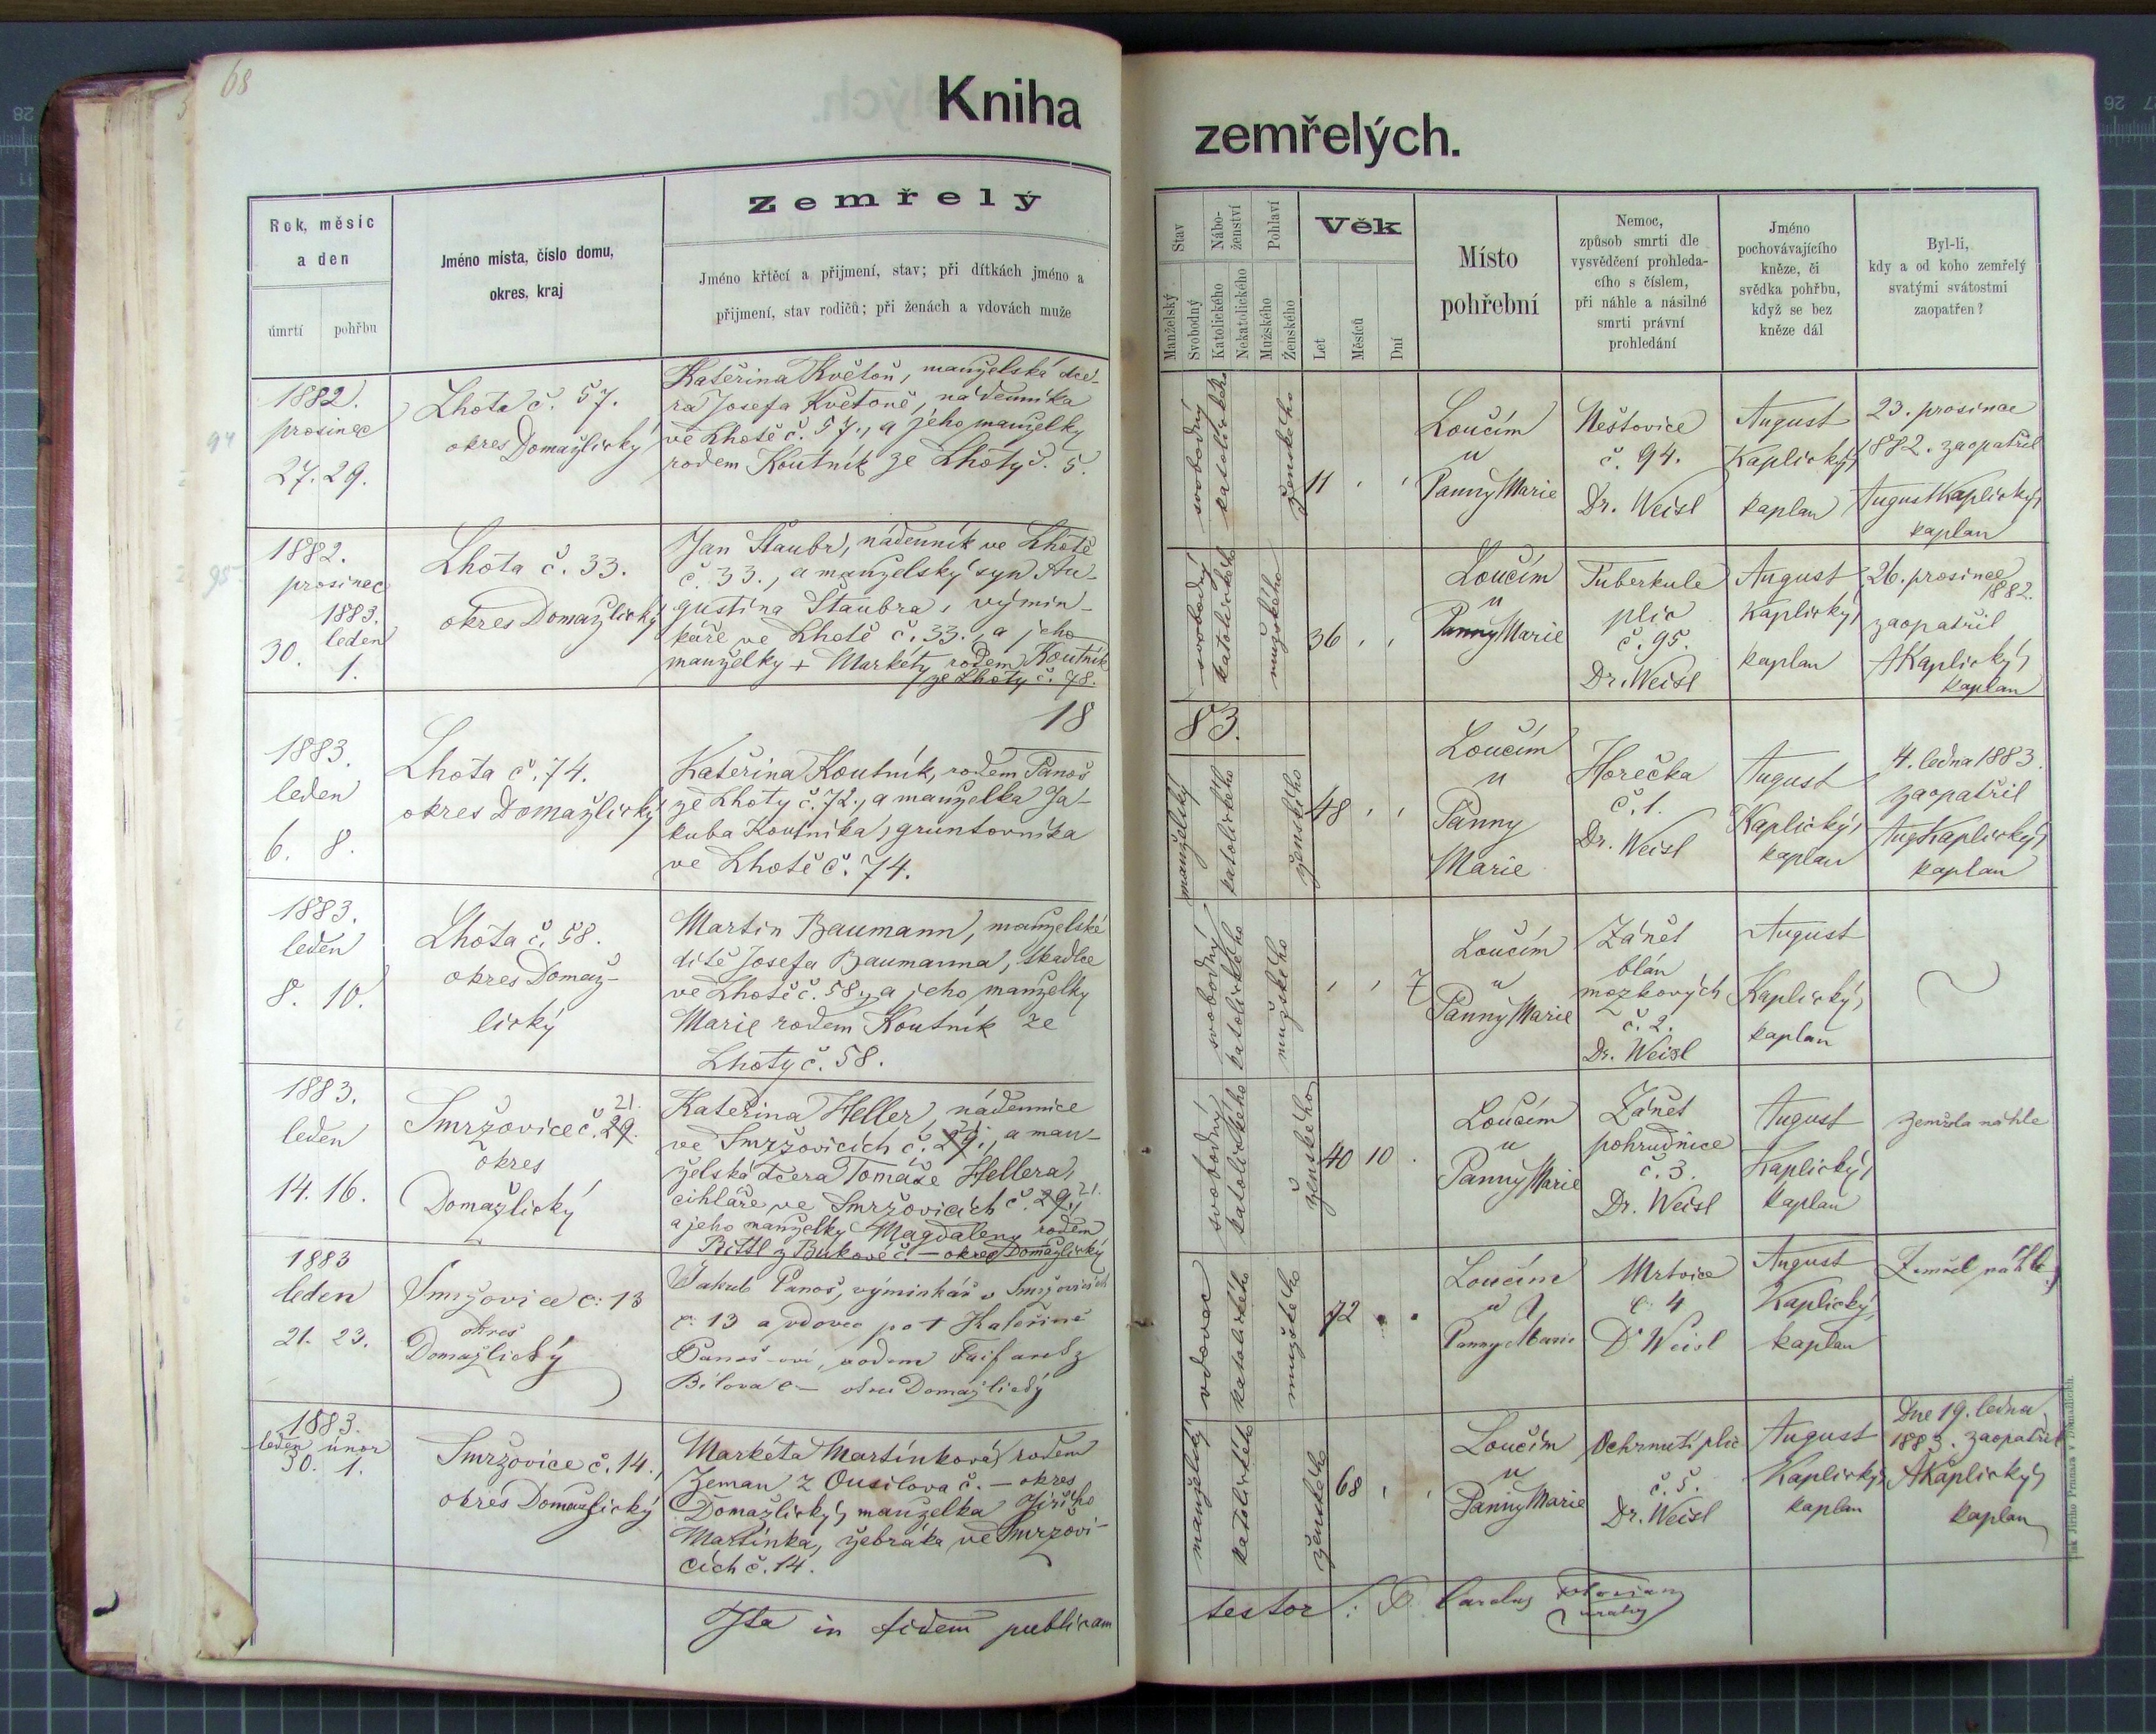 68
Kniha
zemřelých.
Rok, měsíc
a den
úmrtí pohřbu
Jméno místa, číslo domu,
okres, kraj
Zemřelý
Jméno křtěcí a přijmení, stav; při dítkách jméno a
přijmení, stav rodičů; při ženách a vdovách muže
Stav
Manželský
Svobodný
Nábo-
ženství
Katolického
Nekatolického
Pohlaví
Mužského
Ženského
Věk
Let
Měsíců
Dní
Místo
pohřební
Nemoc,
způsob smrti dle
vysvědčení prohleda-
cího s číslem,
při náhle a násilné
smrti právní
prohledání
Jméno
pochovávajícího
kněze, či
svědka pohřbu,
když se bez
kněze dál
Byl-li,
kdy a od koho zemřelý
svatými svátostmi
zaopatřen?
94
1882.
prosinec
27. 29.
Lhota č. 57.
okres Domažlický
Kateřina Květoň, manželská dce-
ra Josefa Květoně, nádenníka
ve Lhotě č. 57., a jeho manželky
rodem Koutník ze Lhoty č. 5.
svobodný
katolického
ženského
11 , ,
Loučím
u
Panny Marie
Neštovice
č. 94.
Dr. Weisl
August
Kaplický,
kaplan
23. prosince
1882. zaopatřil
August Kaplický,
kaplan
95
1882.
prosinec
1883.
leden
30.
1.
Lhota č. 33.
okres Domažlický
Jan Štaubr, nádenník ve Lhotě
č. 33., a manželský syn Au-
gustina Štaubra, výmin-
káře ve Lhotě č. 33., a jeho
manželky + Markéty rodem Koutník
ze Lhoty č. 78.
svobodný
katolického
mužského
36 , ,
Loučím
u
Panny Marie
Tuberkule
plic
č. 95.
Dr. Weisl
August
Kaplický,
kaplan
26. prosince
1882.
zaopatřil
AKaplický,
kaplan
18
83.
1883.
leden
6. 8.
Lhota č. 74.
okres Domažlický
Kateřina Koutník, rodem Panoš
ze Lhoty č. 72., a manželka Ja-
kuba Koutníka, gruntovníka
ve Lhotě č. 74.
manželský
katolického
ženského
48 , ,
Loučím
u
Panny
Marie
Horečka
č. 1.
Dr. Weisl
August
Kaplický,
kaplan
4. ledna 1883.
zaopatřil
Aug Kaplický,
kaplan
1883.
leden
8. 10.
Lhota č. 58.
okres Domaž-
lický
Martin Baumann, manželské
dítě Josefa Baumanna, tkadlce
ve Lhotě č. 58., a jeho manželky
Marie rodem Koutník ze
Lhoty č. 58.
svobodný
katolického
mužského
, , 7
Loučím
u
Panny Marie
Zánět
blán
mozkových
č. 2.
Dr. Weisl
August
Kaplický,
kaplan
1883.
leden
14. 16.
21.
Smržovice č. 29.
okres
Domažlický
Kateřina Heller, nádennice
ve Smržovicích č. 29., a man-
21.
želská dcera Tomáše Hellera,
cihláře ve Smržovicích č. 29., 21.
a jeho manželky Magdaleny rodem
Bittl z Bukové č. — okres Domažlický
svobodný
katolického
ženského
40 10 .
Loučím
u
Panny Marie
Zánět
pohrudnice
č. 3.
Dr. Weisl
August
Kaplický,
kaplan
zemřela náhle
1883
leden
21. 23.
Smržovice č: 13
okres
Domažlický
Jakub Panoš, výminkář v Smržovicích
č. 13 a vdovec po + Kateřině
Panoš-ovi, rodem
Bílova č — okres Domažlický
vdovec
katolického
mužského
72 . .
Loučím
u
Panny Marie
Mrtvice
č. 4
Dr Weisl
August
Kaplický,
kaplan
Zemřel náhle
1883.
leden únor
30. 1.
Smržovice č. 14.,
okres Domažlický
Markéta Martínková, rodem
Zeman z Ousilova č. — okres
Domažlický, manželka Jiřího
Martínka, žebráka ve Smržovi-
cích č. 14.
manželský
katolického
ženského
68 , ,
Loučím
u
Panny Marie
Ochrnutí plic
č. 5.
Dr. Weisl
August
Kaplický,
kaplan
Dne 19. ledna
1883. zaopatřil
AKaplický,
kaplan
Ita in fidem publicam
testor: P. Carolus